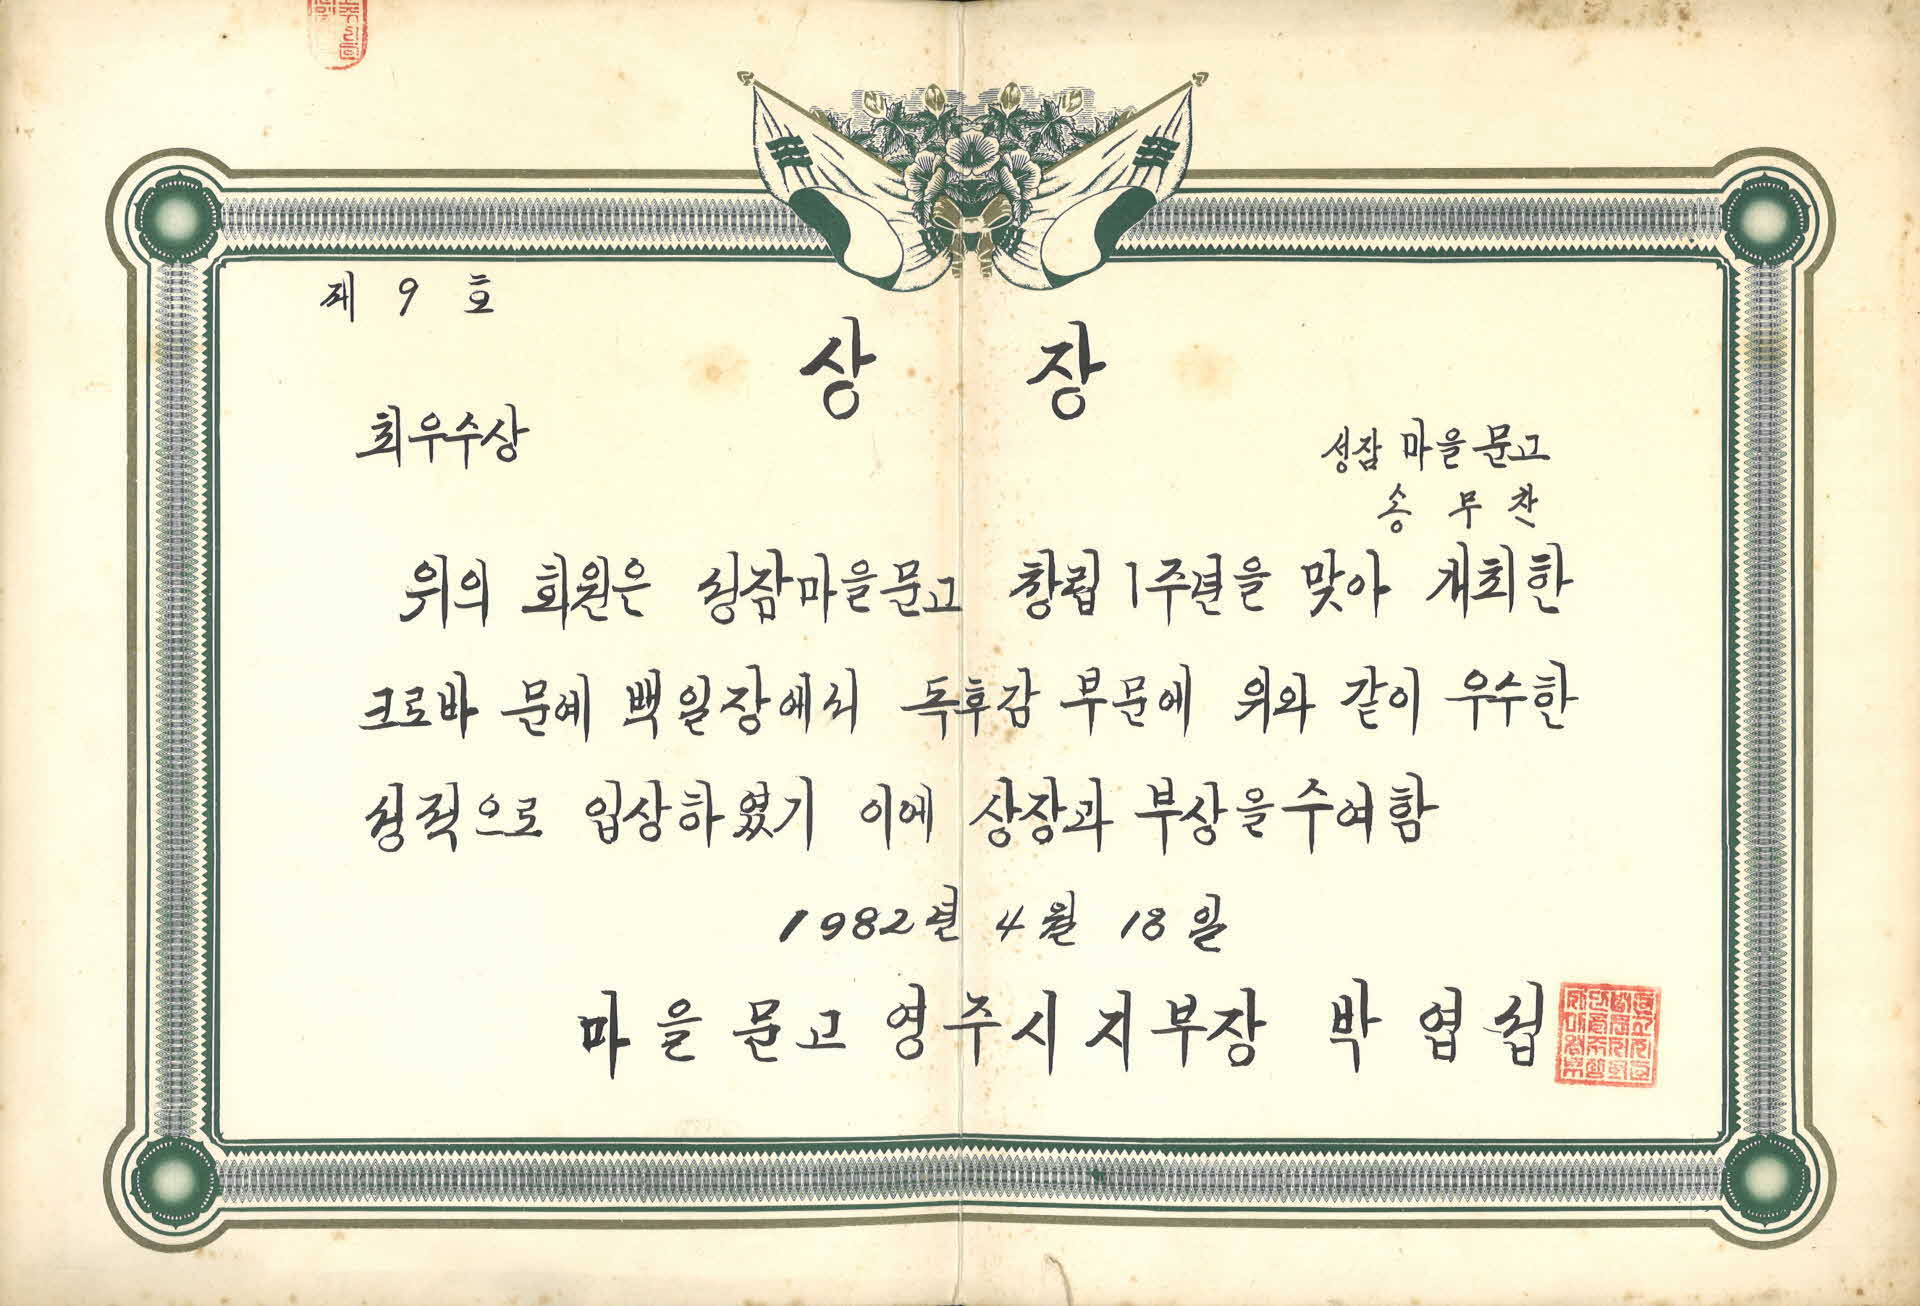 제 9 호
상 장
최우수상
성잠 마을문고
송 무 찬
위의 회원은 성잠마을문고 창립 1주년을 맞아 개최한
크로바 문예 백일장에서 독후감 부문에 위와 같이 우수한
성적으로 입상하였기 이에 상장과 부상을 수여함
1982년 4월 18일
마을문고영주시지부장 박엽섭